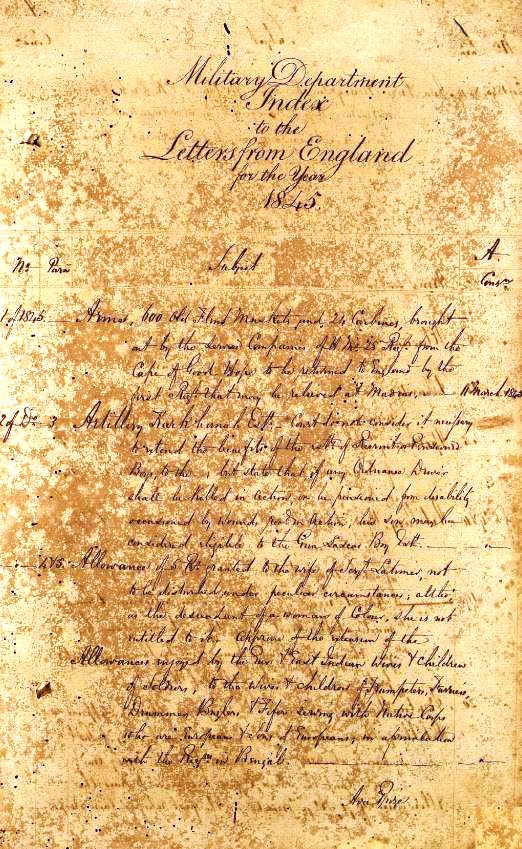 Military Department
Index
to the
Letters from England
for the Year
1845.
No Para Subject A
Cons.
1 of 1845 Arms, 600 Old Flint Muskets and 24 Carbines, brought
out by the Companies of H. M. 25 Regt from the
Cape of Good Hope to be returned to England by the
first Regt that may be relieved at Madras, 11 March 1845
2 of Do 3 Artillery Estt. Court do not consider it necessary
to extend the benefits of the of
Boys, to the but state that if any Ordnance Driver
shall be killed in Action, or be pensioned from disability
occasioned by wounds in Action, his Son may be
considered eligible to the Gun Lascar Boy Estt.
4 & 5. Allowances of 5 Rs. granted to the wife of Serjt. Latimer, not
to be disturbed under peculiar circumstances; altho'
as the descendant of a woman of Colour, she is not
entitled to it. Approve of the extension of the
Allowances enjoyed by the East Indian Wives & Children
of Soldiers, to the Wives & Children of Trumpeters, Farriers,
Drummers, Buglers, & Fifers serving with Native Corps
who are Europeans & Sons of Europeans, in
with the in Bengal.